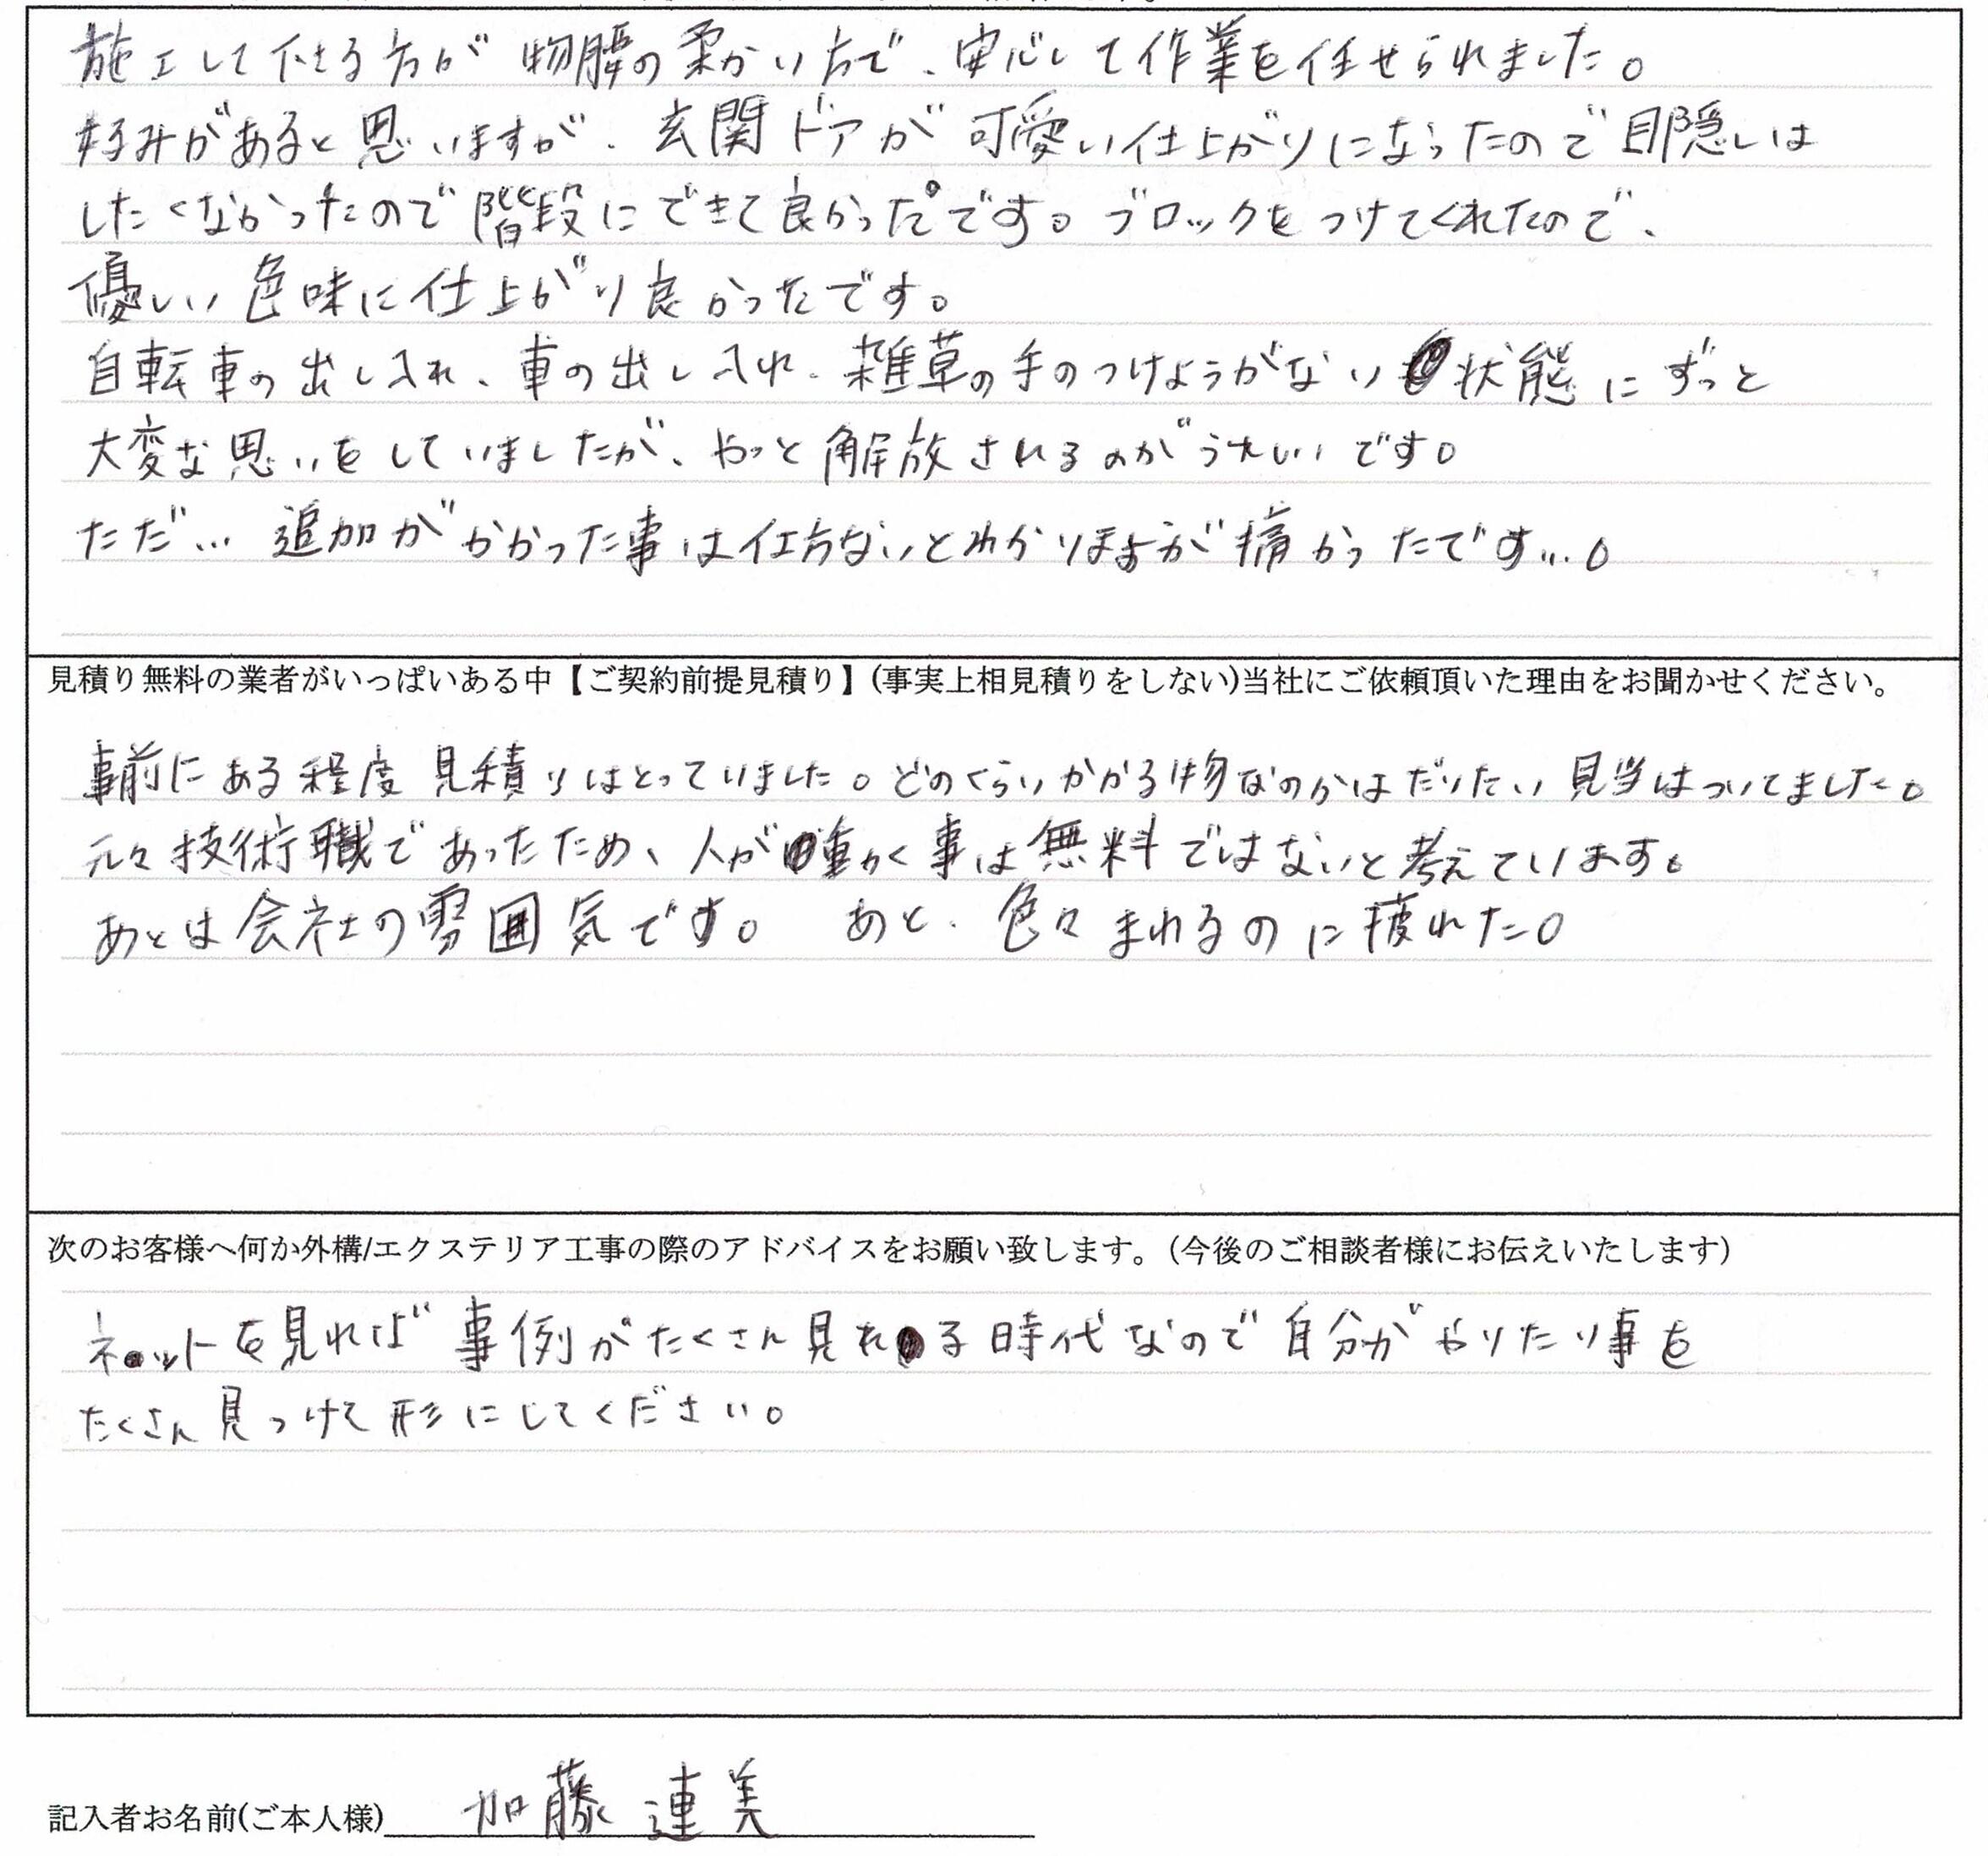 施工して下さる方が物腰の柔かい方で、安心して作業を任せられました。
好みがあると思いますが、玄関ドアが可愛い仕上がりになったので目隠しは
したくなかったので階段にできて良かったです。ブロックをつけてくれたので、
優しい色味に仕上がり良かったです。
自転車の出し入れ、車の出し入れ、雑草の手のつけようがない状態にずっと
大変な思いをしていましたが、やっと解放されるのがうれしいです。
ただ… 追加がかかった事は仕方ないとわかりますが痛かったです…。
見積り無料の業者がいっぱいある中【ご契約前提見積り】(事実上相見積りをしない)当社にご依頼頂いた理由をお聞かせください。
事前にある程度見積りはとっていました。どのくらいかかる物なのかはだいたい見当はついてました。
元々技術職であったため、人が動く事は無料ではないと考えています。
あとは会社の雰囲気です。 あと、色々まわるのに疲れた。
次のお客様へ何か外構/エクステリア工事の際のアドバイスをお願い致します。(今後のご相談者様にお伝えいたします)
ネットを見れば事例がたくさん見れる時代なので自分がやりたい事を
たくさん見つけて形にしてください。
記入者お名前(ご本人様) 加藤 連美